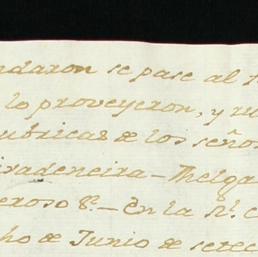 ndaron se pase al
lo proveyeron, y ru
ubricas de los seño
ivadeneira – Melga
eroso S.ª – En la R.l c
ho de Junio de setec